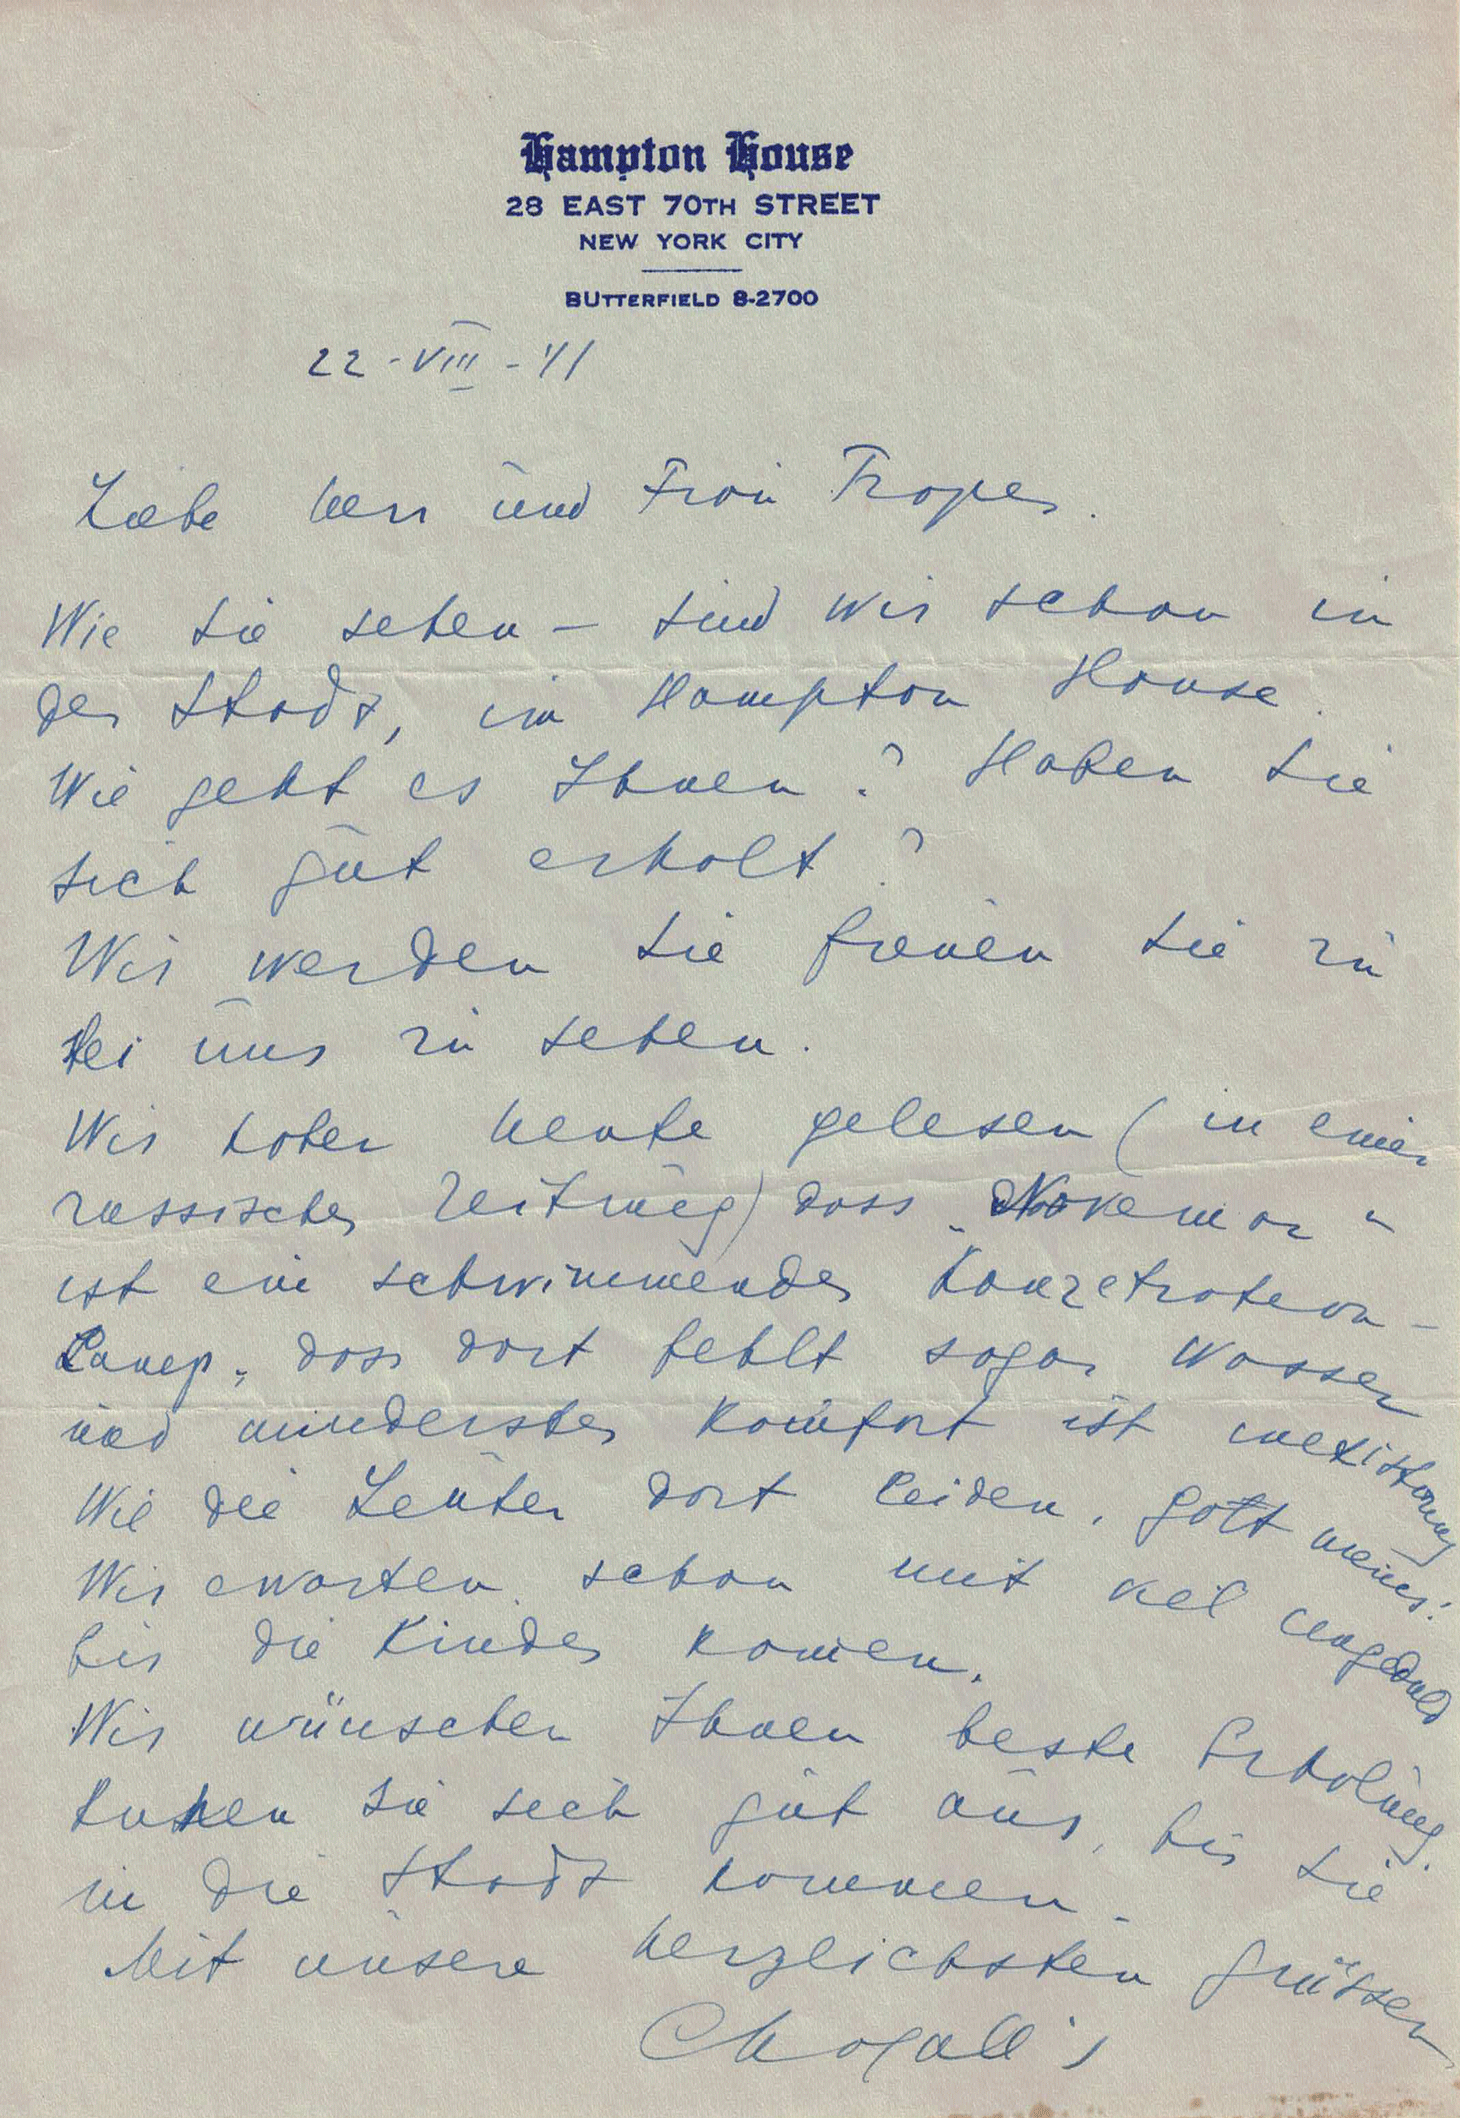 Hampton House
28 EAST 70TH STREET
NEW YORK CITY
BUTTERFIELD 8-2700
22 - VIII - 41
Liebe Herr und Frau
Wie Sie sehen – sind wir schon in
der Stadt, im Hampton House.
Wie geht es Ihnen? Haben Sie
sich gut erholt?
Wir werden Sie freuen Sie zu
bei uns zu sehen.
Wir haben heute gelesen (in einer
russischer Zeitung) dass „Navemar“
ist ein schwimmender Konzetration-
Camp, dass dort fehlt sogar Wasser
und minderster Komfort ist
Wie die Leuten dort leiden, Gott meiner!
Wir erwarten schon mit viel ungeduld
bis die Kinder komen.
Wir wünschen Ihnen beste Erholung.
Ruhen Sie sich gut aus, bis Sie
in die Stadt kommen.
Mit unsere herzlichsten Grüssen
Chagall's